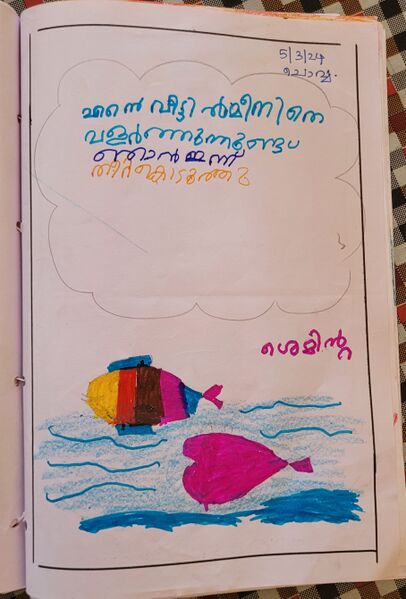 5/3/24
ചൊവ്വ.
എന്റെ വീട്ടിൽ മീനിനെ
വളർത്തുന്നുണ്ട്
ഞാൻ ഇന്ന്
തീറ്റ കൊടുത്തു